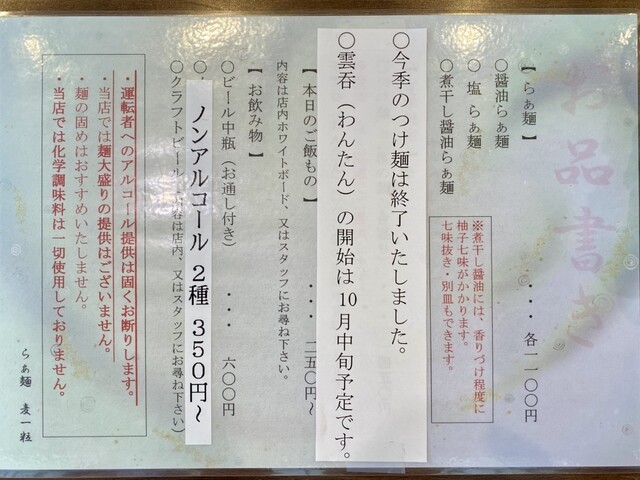 お品書き
【らぁ麺】
〇醤油らぁ麺 ・・・ 各一一〇〇円
〇塩 らぁ麺
〇煮干し醤油らぁ麺
※煮干し醤油には、香りづけ程度に
柚子七味がかかります。
七味抜き・別皿もできます。
〇今季のつけ麺は終了いたしました。
〇雲吞（わんたん）の開始は10月中旬予定です。
【本日のご飯もの】 ・・・ 二五〇円～
内容は店内ホワイトボード、又はスタッフにお尋ね下さい。
【お飲み物】
〇ビール中瓶（お通し付き） ・・・ 六〇〇円
ノンアルコール 2種 350円～
〇クラフトビール は店内、又はスタッフにお尋ね下さい）
・運転者へのアルコール提供は固くお断りします。
・当店では麺大盛りの提供はございません。
・麺の固めはおすすめいたしません。
・当店では化学調味料は一切使用しておりません。
らぁ麺 麦一粒